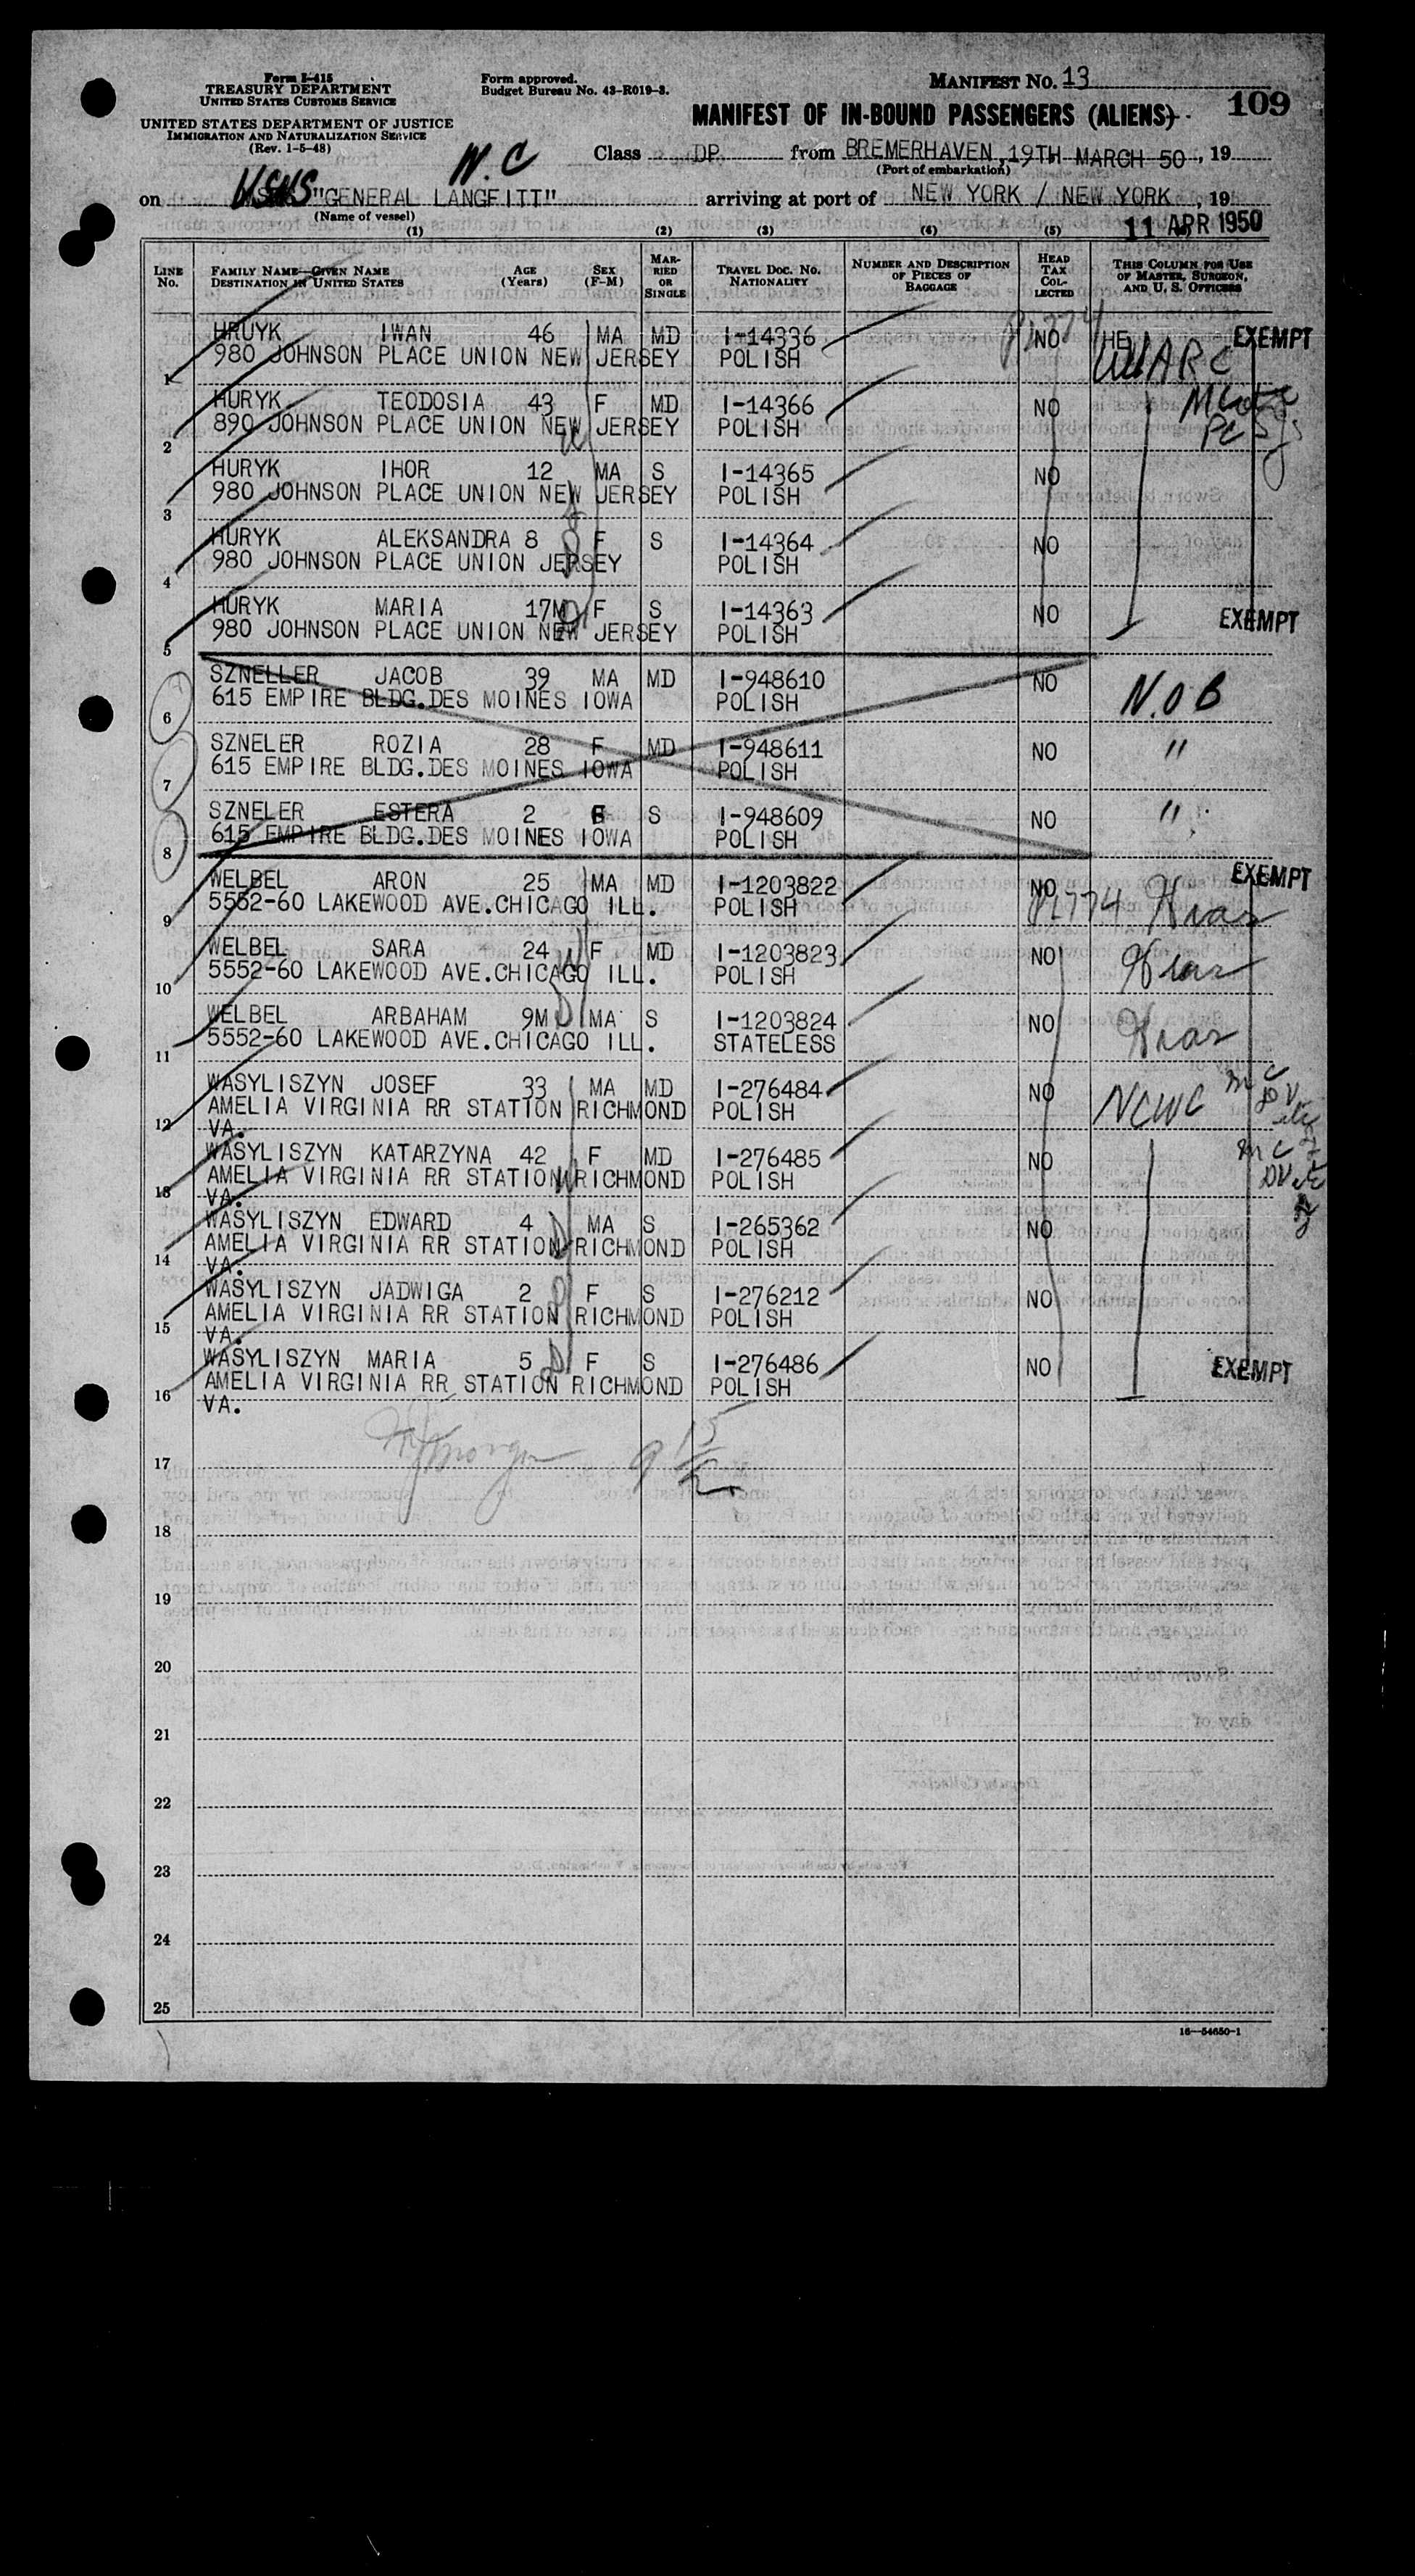 Form I-415
TREASURY DEPARTMENT
UNITED STATES CUSTOMS SERVICE
UNITED STATES DEPARTMENT OF JUSTICE
IMMIGRATION AND NATURALIZATION SERVICE
(Rev. 1-5-48)
Form approved.
Budget Bureau No. 43-R019-3.
MANIFEST NO. 13
109
MANIFEST OF IN-BOUND PASSENGERS (ALIENS)
N.C
Class DP from BREMERHAVEN, 19TH MARCH 50, 19
(Port of embarkation)
on USNS "GENERAL LANGFITT" arriving at port of NEW YORK / NEW YORK, 19
(Name of vessel)
11 APR 1950
(1) (2) (3) (4) (5)
LINE No. FAMILY NAME—GIVEN NAME DESTINATION IN UNITED STATES AGE (Years) SEX (F-M) MARRIED OR SINGLE TRAVEL DOC. NO. NATIONALITY NUMBER AND DESCRIPTION OF PIECES OF BAGGAGE HEAD TAX COLLECTED THIS COLUMN FOR USE OF MASTER, SURGEON, AND U. S. OFFICERS
HRUYK IWAN 46 MA MD I-14336 NO HE EXEMPT
1 980 JOHNSON PLACE UNION NEW JERSEY POLISH
HURYK TEODOSIA 43 F MD I-14366 NO
2 890 JOHNSON PLACE UNION NEW JERSEY POLISH
HURYK IHOR 12 MA S I-14365 NO
3 980 JOHNSON PLACE UNION NEW JERSEY POLISH
HURYK ALEKSANDRA 8 F S I-14364 NO
4 980 JOHNSON PLACE UNION JERSEY POLISH
HURYK MARIA 17M F S I-14363 NO EXEMPT
5 980 JOHNSON PLACE UNION NEW JERSEY POLISH
SZNELLER JACOB 39 MA MD I-948610 NO N.O B
6 615 EMPIRE BLDG.DES MOINES IOWA POLISH
SZNELER ROZIA 28 F MD I-948611 NO "
7 615 EMPIRE BLDG.DES MOINES IOWA POLISH
SZNELER ESTERA 2 F S I-948609 NO "
8 615 EMPIRE BLDG.DES MOINES IOWA POLISH
WELBEL ARON 25 MA MD I-1203822 NO EXEMPT
9 5552-60 LAKEWOOD AVE.CHICAGO ILL. POLISH PL774 Hias
WELBEL SARA 24 F MD I-1203823 NO Hias
10 5552-60 LAKEWOOD AVE.CHICAGO ILL. POLISH
WELBEL ARBAHAM 9M MA S I-1203824 NO Hias
11 5552-60 LAKEWOOD AVE.CHICAGO ILL. STATELESS
WASYLISZYN JOSEF 33 MA MD I-276484 NO NCWC
12 AMELIA VIRGINIA RR STATION RICHMOND POLISH
VA.
WASYLISZYN KATARZYNA 42 F MD I-276485 NO
13 AMELIA VIRGINIA RR STATION RICHMOND POLISH
VA.
WASYLISZYN EDWARD 4 MA S I-265362 NO
14 AMELIA VIRGINIA RR STATION RICHMOND POLISH
VA.
WASYLISZYN JADWIGA 2 F S I-276212 NO
15 AMELIA VIRGINIA RR STATION RICHMOND POLISH
VA.
WASYLISZYN MARIA 5 F S I-276486 NO EXEMPT
16 AMELIA VIRGINIA RR STATION RICHMOND POLISH
VA.
17
18
19
20
21
22
23
24
25
16—54650-1